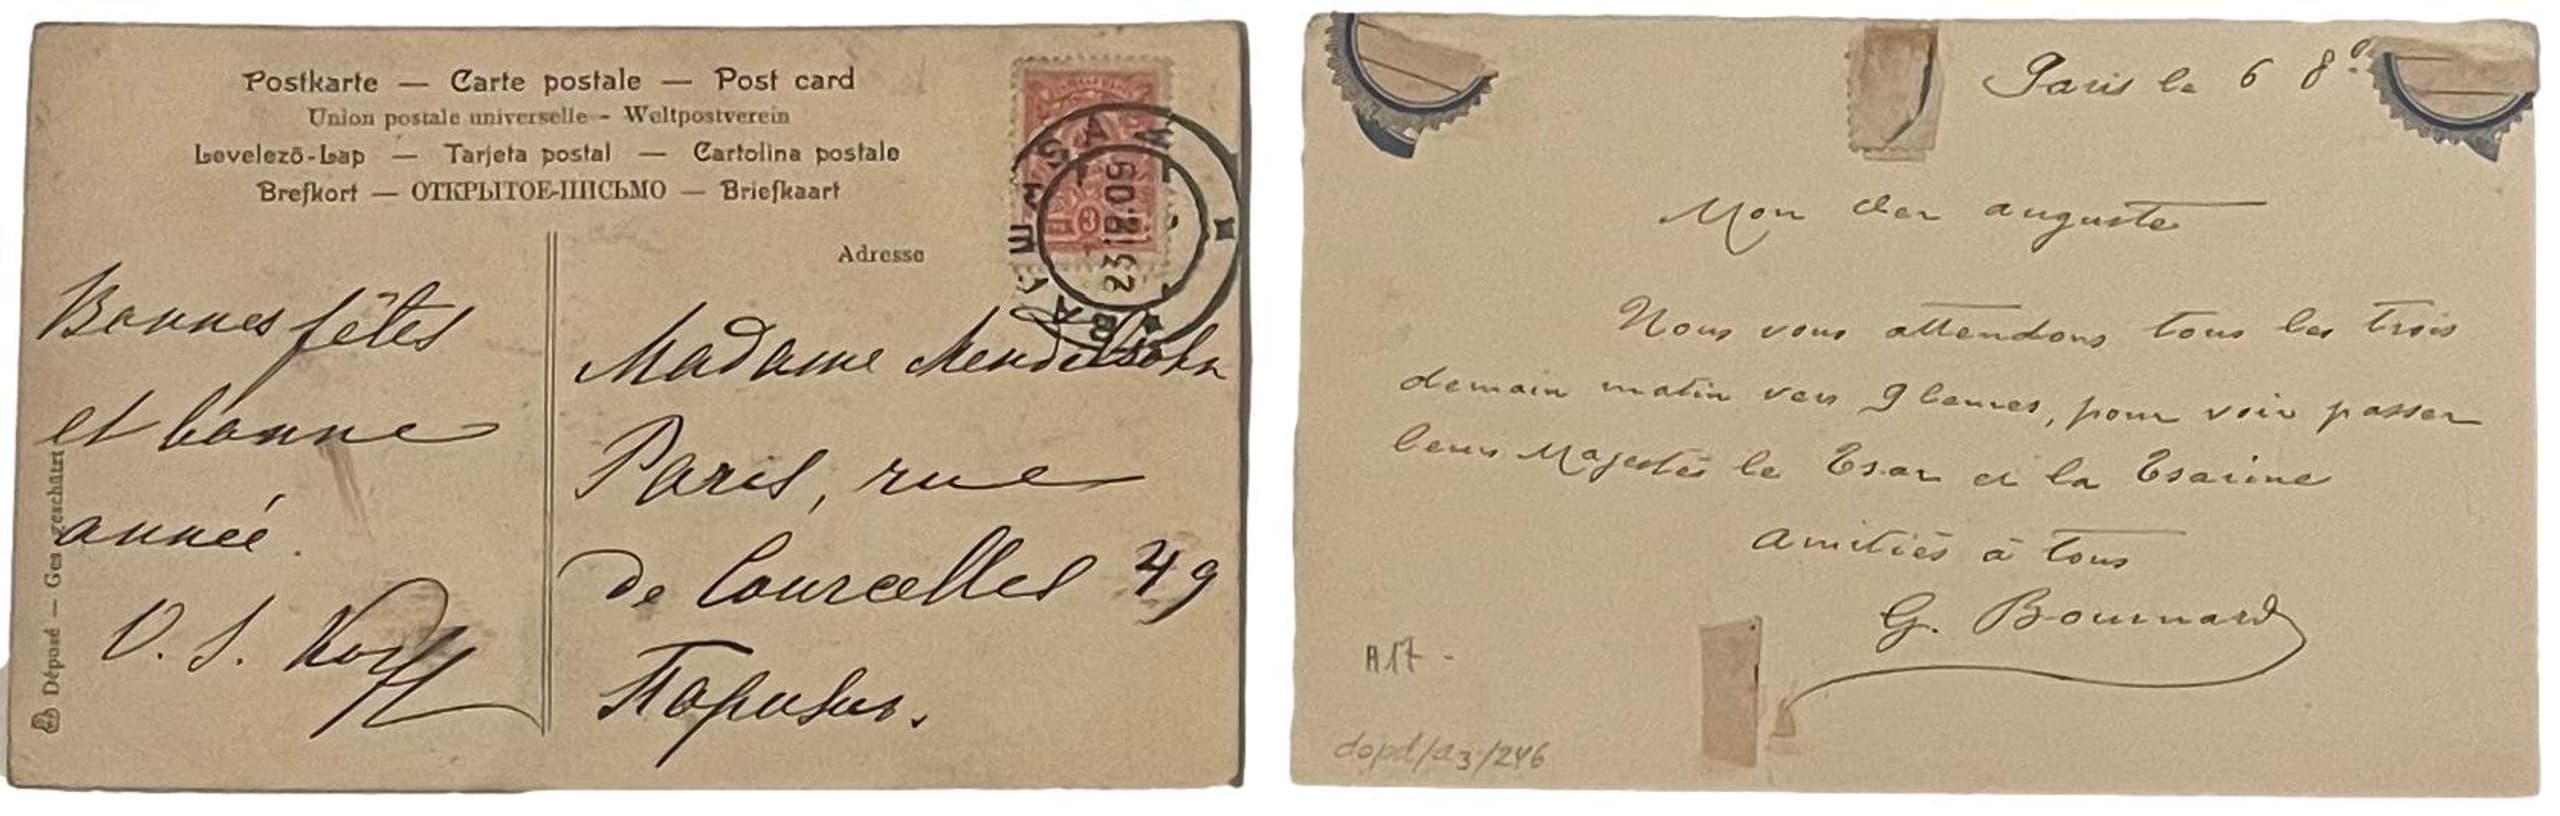 Postkarte — Carte postale — Post card
Union postale universelle - Weltpostverein
Levelező-Lap — Tarjeta postal — Cartolina postale
Brefkort — ОТКРЫТОЕ-ПИСЬМО — Briefkaart
Adresse
3
23.12.09
Bonnes fêtes
et bonne
année.
O. S. Korff
Madame Mendelssohn
Paris, rue
de Courcelles 49
Парижъ.
Déposé — Ges. geschützt
Paris le 6 8º
Mon cher auguste
Nous vous attendons tous les trois
demain matin vers 9 heures, pour voir passer
leurs Majestés le Tsar et la Tsarine
Amitiés à tous
G. Bournard
A17 -
dopd/a3/246